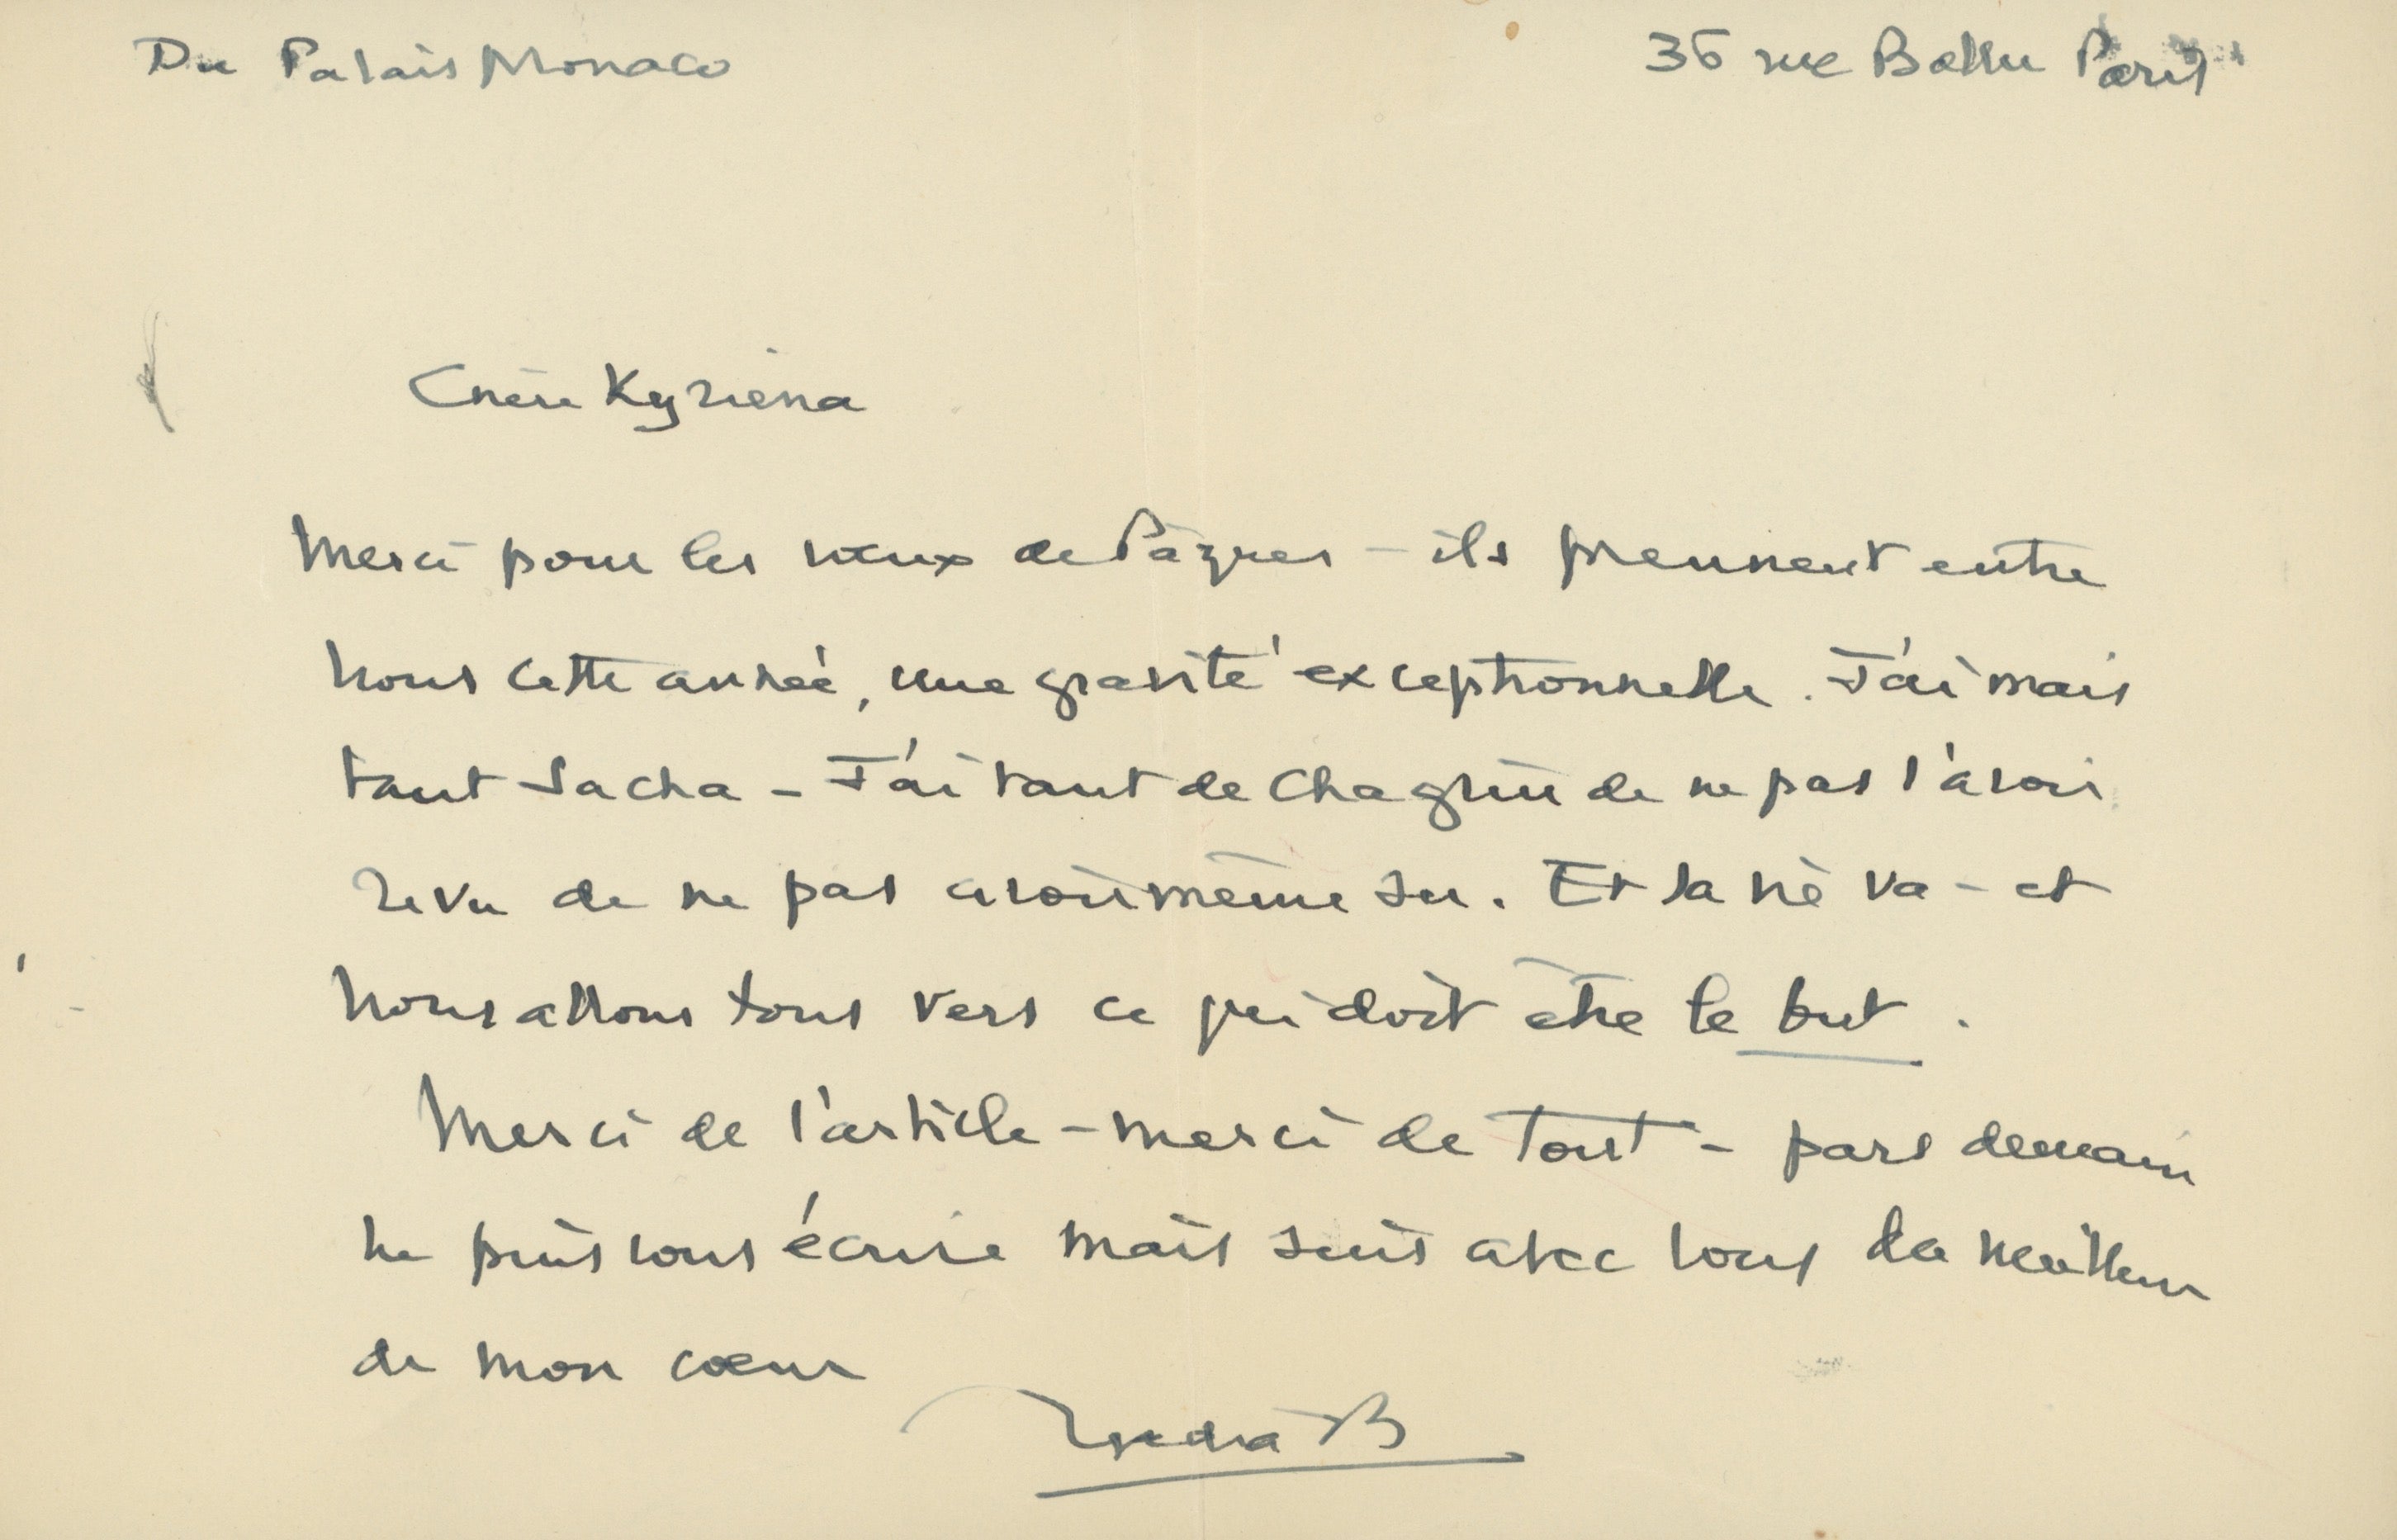 Du Palais Monaco
36 rue Ballu Paris
Chère Kyriena
Merci pour les vœux de Pâques – ils prennent entre
nous cette année, une gravité exceptionnelle. J'aimais
tant Sacha – J'ai tant de chagrin de ne pas l'avoir
revu de ne pas avoir même su. Et la vie va – et
nous allons tous vers ce qui doit être le but.
Merci de l'article – merci de tout – pars demain
ne puis vous écrire mais suis avec vous du meilleur
de mon cœur
Nadia B